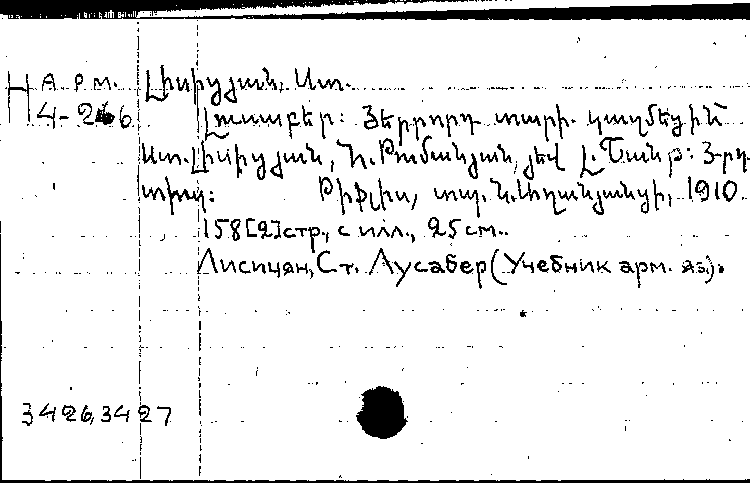 Н А Р М. Լիսիցյան, Ստ.
4-266 Լուսաբեր: Յերրորդ տարի. կազմեցին
Ստ. Լիսիցյան, Հ. Թումանյան, յեվ Լ. Շանթ: 3-րդ
տիպ: Թիֆլիս, տպ. Ն. Աղանյանցի, 1910.
158[2]стр., с илл., 25см..
Лисицян, Ст. Лусабер (Учебник арм. яз.).
3426,3427